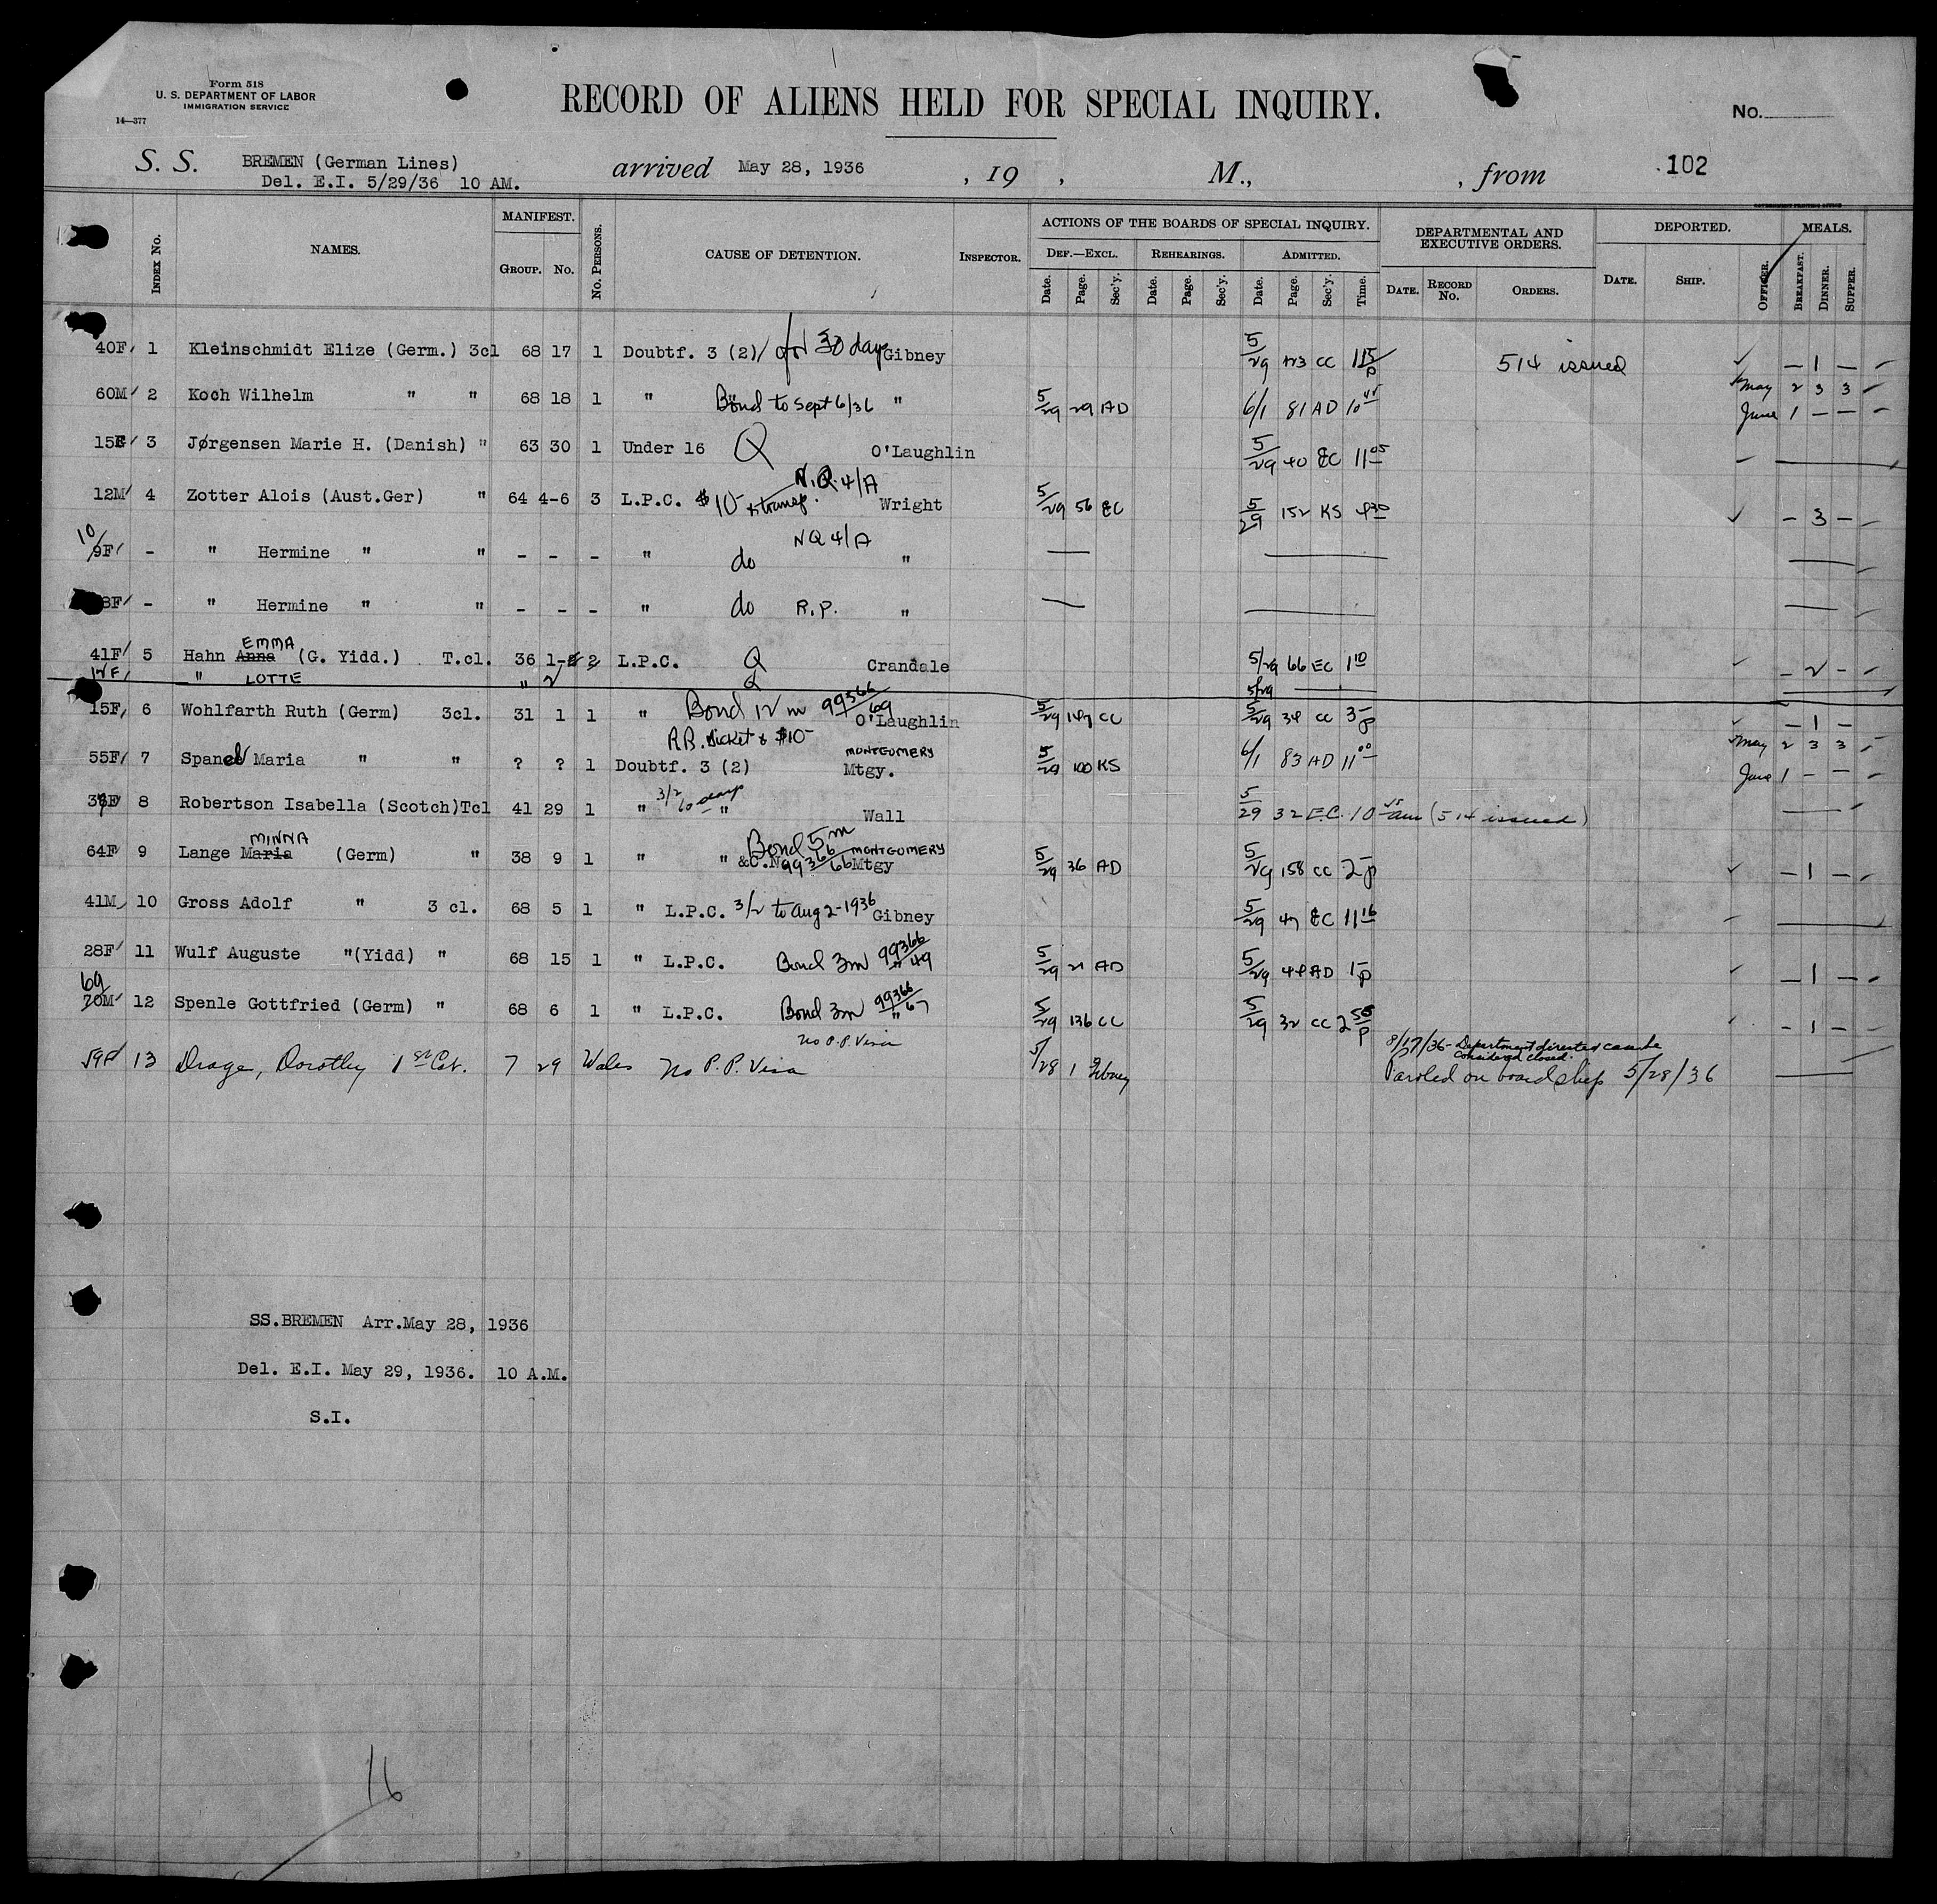 Form 518
U. S. DEPARTMENT OF LABOR
IMMIGRATION SERVICE
14—377
RECORD OF ALIENS HELD FOR SPECIAL INQUIRY.
No.
S. S. BREMEN (German Lines) arrived May 28, 1936 , 19 , M., , from 102
Del. E.I. 5/29/36 10 AM.
GOVERNMENT PRINTING OFFICE
Index No. NAMES. MANIFEST. Group. No. No. Persons. CAUSE OF DETENTION. Inspector. ACTIONS OF THE BOARDS OF SPECIAL INQUIRY. DEPARTMENTAL AND EXECUTIVE ORDERS. DEPORTED. MEALS.
Def.—Excl. Rehearings. Admitted.
Date. Page. Sec'y. Date. Page. Sec'y. Date. Page. Sec'y. Time. Date. Record No. Orders. Date. Ship. Officer. Breakfast. Dinner. Supper.
40F 1 Kleinschmidt Elize (Germ.) 3cl 68 17 1 Doubtf. 3 (2) for 30 days Gibney 5/29 423 CC 1 15/p 514 issued — 1 —
60M 2 Koch Wilhelm " " 68 18 1 " " Bond to Sept 6/36 " 5/29 29 AD 6/1 81 AD 10 45 May 2 3 3
June 1 — —
15F 3 Jørgensen Marie H. (Danish) " 63 30 1 Under 16 Q O'Laughlin 5/29 40 EC 11 05
12M 4 Zotter Alois (Aust.Ger) " 64 4-6 3 L.P.C. $10 + transp. N.Q. 4/A Wright 5/29 56 EC 5/29 152 KS 4 30 — 3 —
10
9F - " Hermine " " - - - " do NQ 4/A "
8F - " Hermine " " - - - " do R.P. "
41F 5 Hahn Anna EMMA (G. Yidd.) T.cl. 36 1- 2 L.P.C. Q Crandale 5/29 66 EC 1 10 — 2 —
17F " LOTTE " 2 Q 5/29
15F 6 Wohlfarth Ruth (Germ) 3cl. 31 1 1 " Bond 12 m 99366/69 O'Laughlin 5/29 147 CC 5/29 34 CC 3 p — 1 —
R.R. ticket & $10
55F 7 Spanel Maria " " ? ? 1 Doubtf. 3 (2) MONTGOMERY Mtgy. 5/29 100 KS 6/1 83 AD 11 00 May 2 3 3
June 1 — —
8 Robertson Isabella (Scotch)Tcl 41 29 1 " 3/2 60 days " Wall 5/29 32 E.C. 10 45 am (514 issued)
64F 9 Lange Maria MINNA (Germ) " 38 9 1 " " &C.N Bond 5 m 99366/66 MONTGOMERY Mtgy 5/29 36 AD 5/29 158 CC 2 p — 1 —
41M 10 Gross Adolf " 3 cl. 68 5 1 " L.P.C. 3/2 to Aug 2-1936 Gibney 5/29 47 EC 11 16
28F 11 Wulf Auguste "(Yidd) " 68 15 1 " L.P.C. Bond 3m 99366/49 " 5/29 21 AD 5/29 44 AD 1 p — 1 —
69
70M 12 Spenle Gottfried (Germ) " 68 6 1 " L.P.C. Bond 3m 99366/67 " 5/29 136 CC 5/29 32 CC 2 50/p — 1 —
No P.P. Visa
8/17/36 - Department directed case be
considered closed.
59F 13 Drage, Dorothy 1st Cab. 7 29 Wales No P.P. Visa 5/28 1 Gibney Paroled on board ship 5/28/36
SS.BREMEN Arr.May 28, 1936
Del. E.I. May 29, 1936. 10 A.M.
S.I.
16